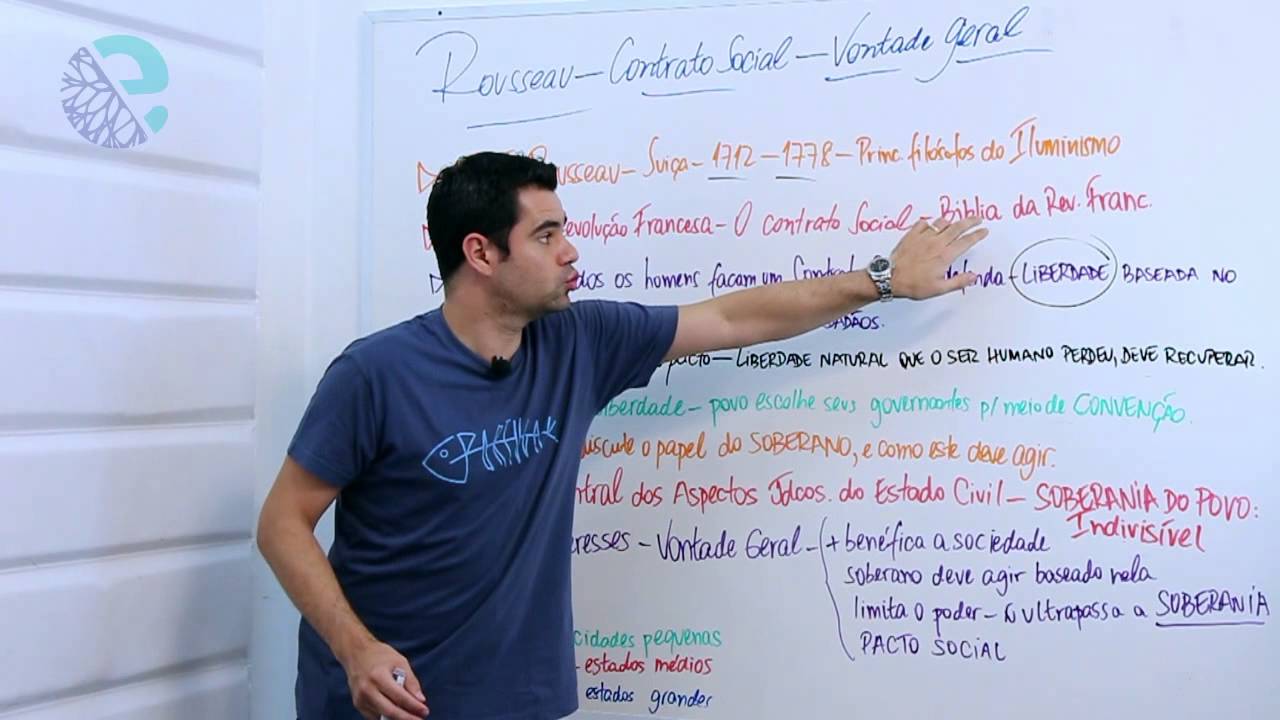 Rousseau – Contrato Social – Vontade Geral
Rousseau – Suiça – 1712 – 1778 – Princ. filósofos do Iluminismo
evolução Francesa – O contrato Social – Biblia da Rev. Franc.
dos os homens façam um Contrat LIBERDADE BASEADA NO
DADÃOS.
pacto – LIBERDADE NATURAL QUE O SER HUMANO PERDEU, DEVE RECUPERAR.
iberdade – povo escolhe seus governantes p/ meio de CONVENÇÃO.
iscute o papel do SOBERANO, e como este deve agir.
ntral dos Aspectos Jdcos. do Estado Civil – SOBERANIA DO POVO:
Indivisível
eresses – Vontade Geral – + benéfica a sociedade
soberano deve agir baseado nela
limita o poder – ñ ultrapassa a SOBERANIA
PACTO SOCIAL
cidades pequenas
– estados médios
estados grandes